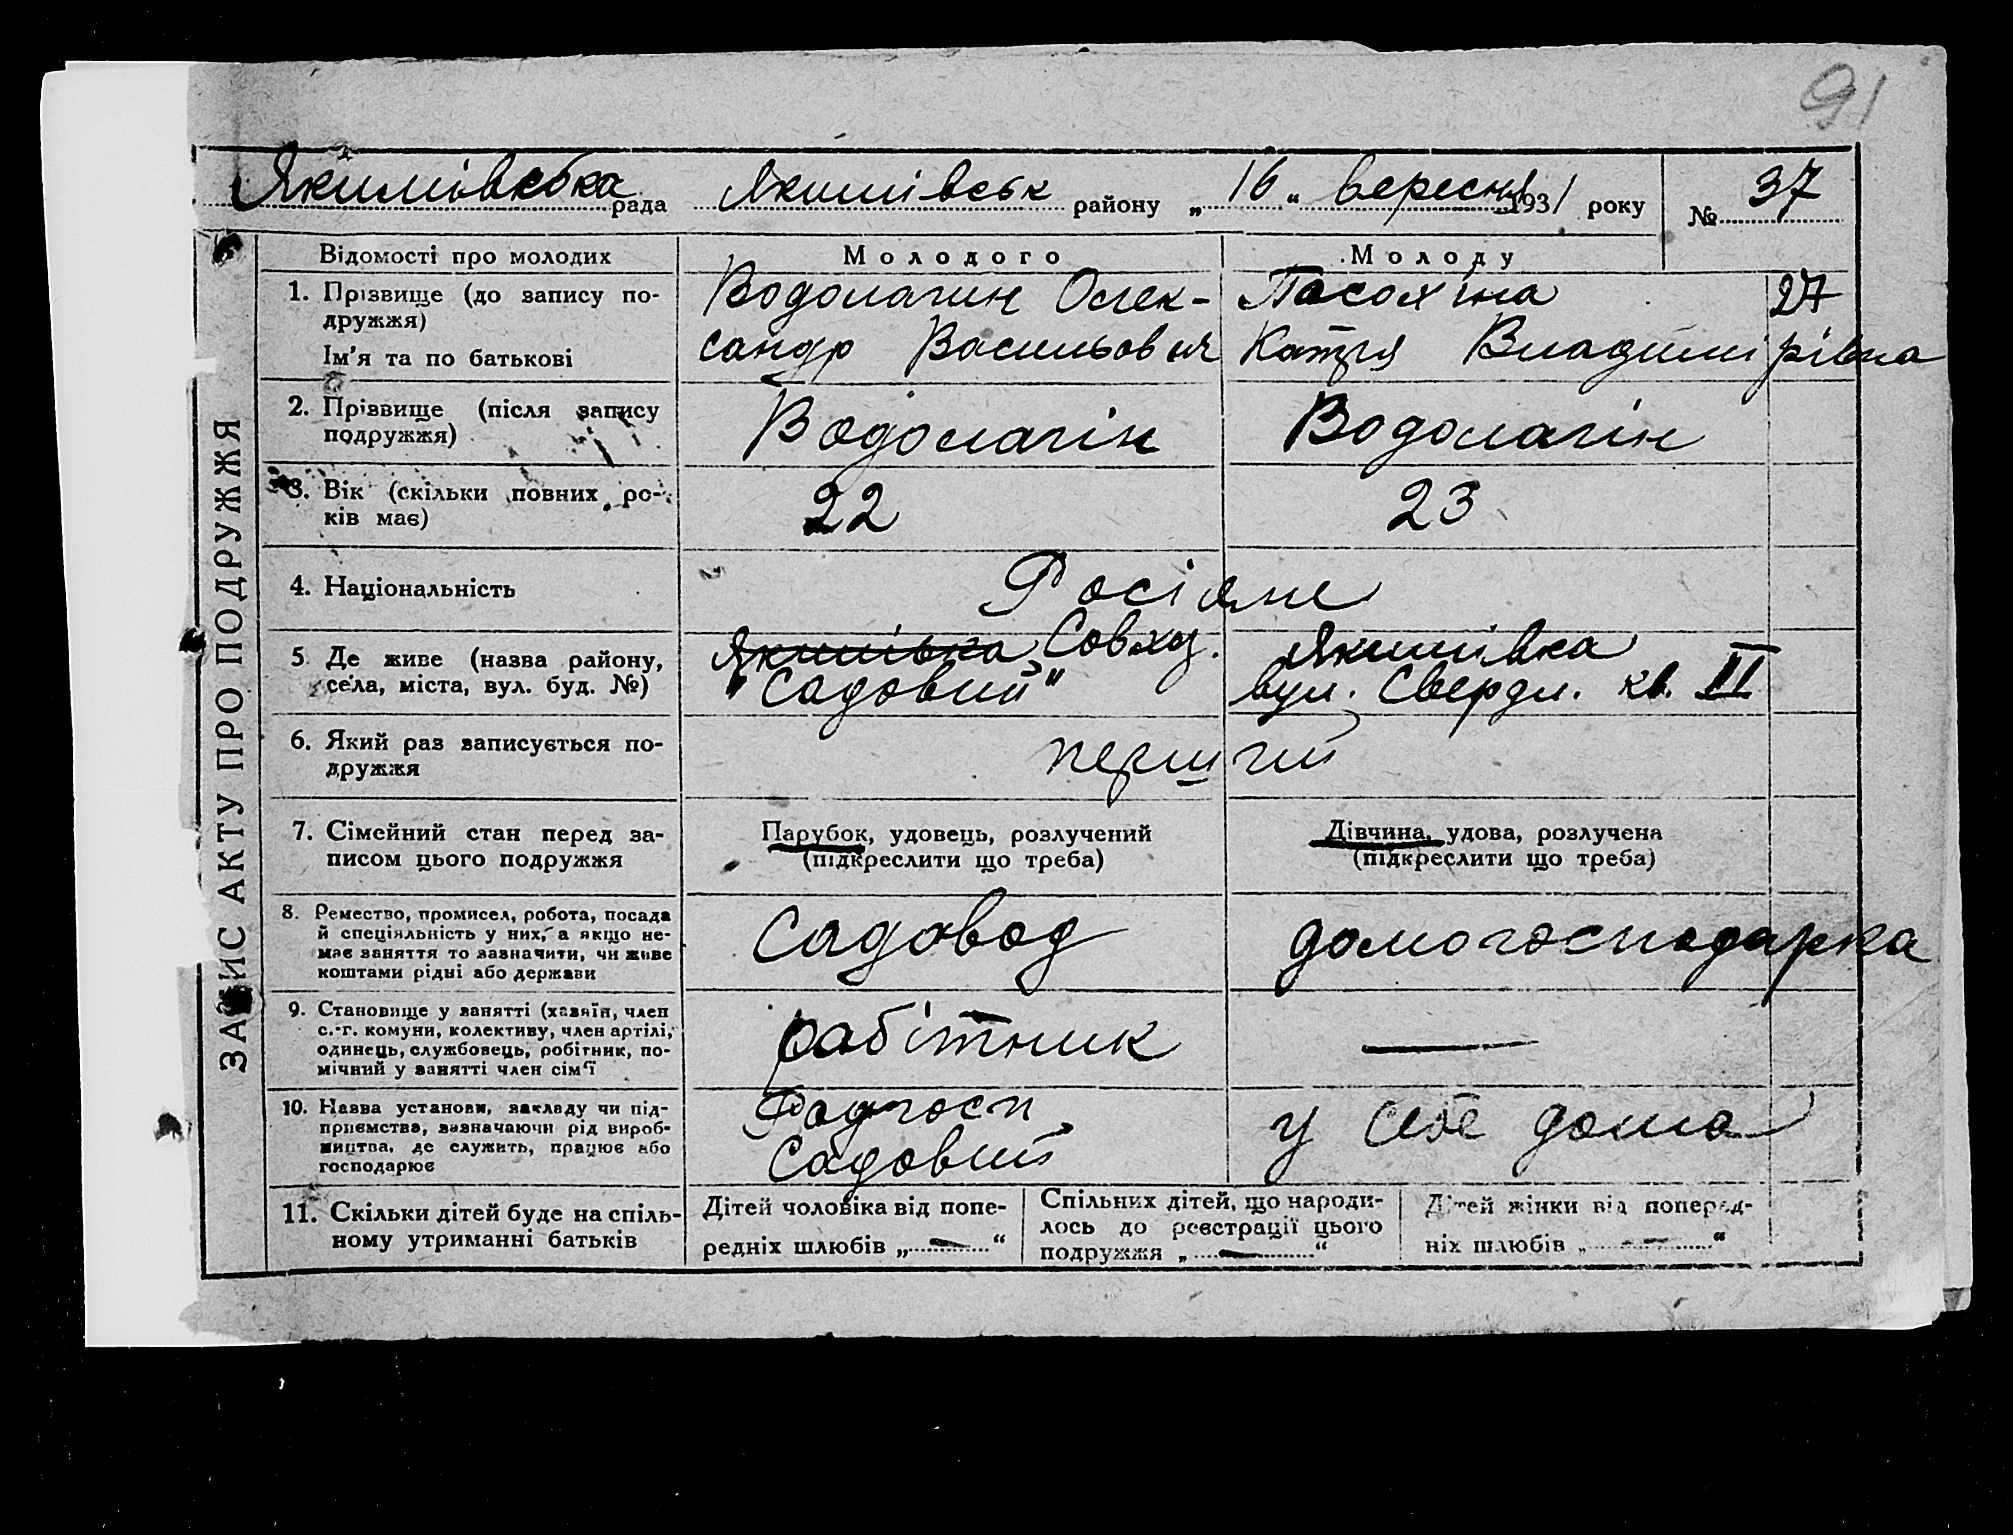 91
Якимівська рада Якимівськ району „16“ вересня 1931 року № 37
ЗАПИС АКТУ ПРО ПОДРУЖЖЯ
Відомості про молодих
Молодого
Молоду
1. Прізвище (до запису по-
дружжя)
Ім'я та по батькові
Водолагин Олек-
сандр Васильович
Пасохіна
Катря Владимірівна
27
2. Прізвище (після запису
подружжя)
Водолагін
Водолагін
3. Вік (скільки повних ро-
ків має)
22
23
4. Національність
Росіяне
5. Де живе (назва району,
села, міста, вул. буд. №)
Якимівка Совхоз.
"Садовий"
Якимівка
вул. Свердл. кв. II
6. Який раз записується по-
дружжя
перший
7. Сімейний стан перед за-
писом цього подружжя
Парубок, удовець, розлучений
(підкреслити що треба)
Дівчина, удова, розлучена
(підкреслити що треба)
8. Ремество, промисел, робота, посада
й спеціяльність у них, а якщо не-
має заняття то зазначити, чи живе
коштами рідні або держави
садовод
домогосподарка
9. Становище у занятті (хазяїн, член
с.-г. комуни, колективу, член артілі,
одинець, службовець, робітник, по-
мічний у занятті член сім'ї
рабітник
—
10. Назва установи, закладу чи під-
приємства, зазначаючи рід вироб-
ництва, де служить, працює або
господарює
Радгосп
Садовий
у себе дома
11. Скільки дітей буде на спіль-
ному утриманні батьків
Дітей чоловіка від попе-
редніх шлюбів „—“
Спільних дітей, що народи-
лось до реєстрації цього
подружжя „—“
Дітей жінки від поперед-
ніх шлюбів „—“